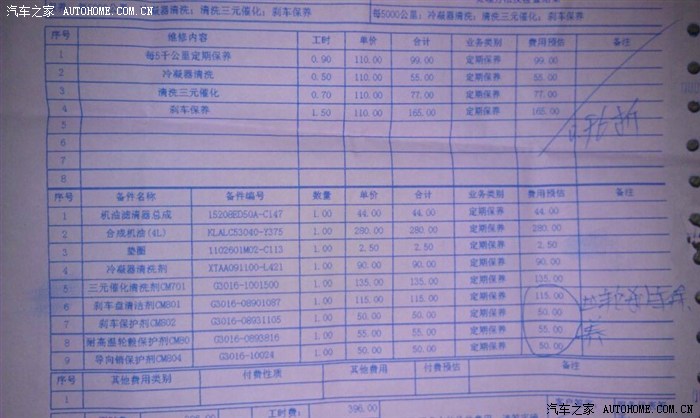 汽车之家 AUTOHOME.COM.CN
冷凝器清洗；清洗三元催化；刹车保养
每5000公里；冷凝器清洗；清洗三元催化；刹车保养
序号 维修内容 工时 单价 合计 业务类别 费用预估 备注
1 每5千公里定期保养 0.90 110.00 99.00 定期保养 99.00
2 冷凝器清洗 0.50 110.00 55.00 定期保养 55.00
3 清洗三元催化 0.70 110.00 77.00 定期保养 77.00
4 刹车保养 1.50 110.00 165.00 定期保养 165.00
5
6
7
8
序号 备件名称 备件编号 数量 单价 合计 业务类别 费用预估 备注
1 机油滤清器总成 15208ED50A-C147 1.00 44.00 44.00 定期保养 44.00
2 合成机油(4L) KLALC53040-Y375 1.00 280.00 280.00 定期保养 280.00
3 垫圈 1102601M02-C113 1.00 2.50 2.50 定期保养 2.50
4 冷凝器清洗剂 XTAA091100-L421 1.00 90.00 90.00 定期保养 90.00
5 三元催化清洗剂CM701 G3016-1001500 1.00 135.00 135.00 定期保养 135.00
6 刹车盘清洁剂CM801 G3016-08901087 1.00 115.00 115.00 定期保养 115.00
7 刹车保护剂CM802 G3016-08931105 1.00 50.00 50.00 定期保养 50.00
8 耐高温轮毂保护剂CM80 G3016-0893816 1.00 55.00 55.00 定期保养 55.00
9 导向销保护剂CM804 G3016-10024 1.00 50.00 50.00 定期保养 50.00
序号 其他费用类别 付费性质 其他费用 付费预估 备注
1
工时费： 396.00
汽车之家 AUTOHOME.COM.CN